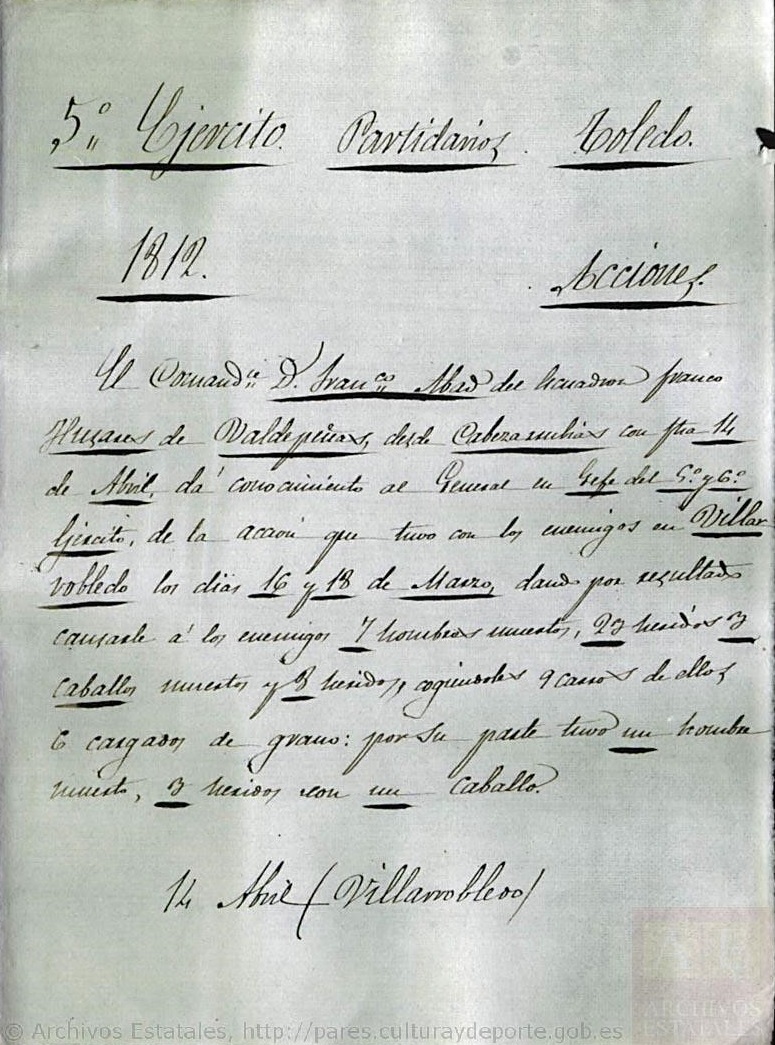 5º Ejercito. Partidarios. Toledo.
1812. Acciones.
El Comandte D. Franco Abad del Escuadron franco
Husares de Valdepeñas, desde Cabezarrubias con fha 14
de Abril, dá conocimiento al General en Gefe del 5º y 6º
Ejército, de la acción que tuvo con los enemigos en Villar
robledo los dias 16 y 18 de Marzo, dando por resultado
causarle á los enemigos 7 hombres muertos, 23 heridos 3
caballos muertos y 8 heridos, cogiendoles 9 carros de ellos
6 cargados de grano: por su parte tuvo un hombre
muerto, 3 heridos con un caballo.
14 Abril (Villarrobledo)
© Archivos Estatales, http://pares.culturaydeporte.gob.es
ARCHIVOS
ESTATALES